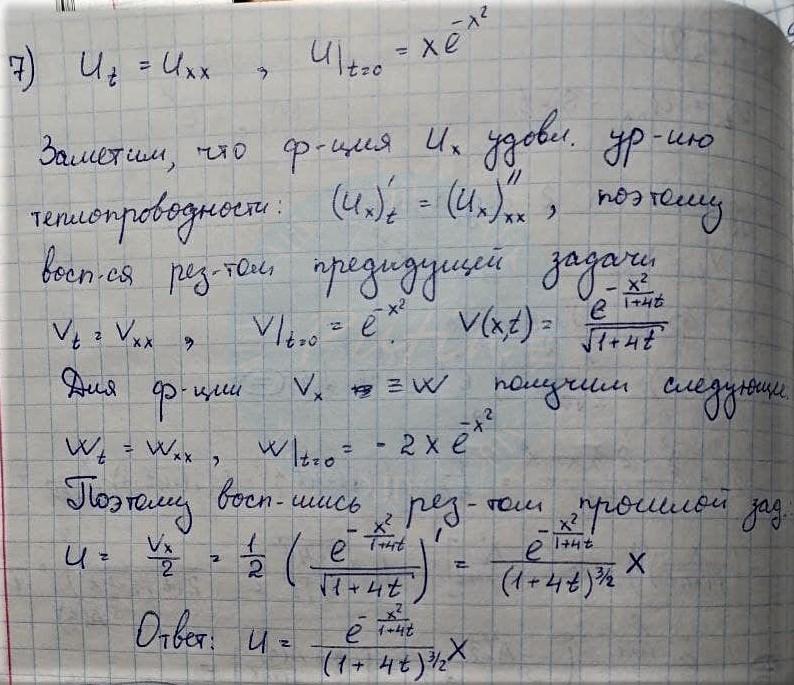 7) U_t = U_xx , U|_{t=0} = xe^{-x^2}
Заметим, что ф-ция U_x удовл. ур-ию
теплопроводности: (U_x)'_t = (U_x)''_xx , поэтому
восп-ся рез-том предидущей задачи
V_t = V_xx , V|_{t=0} = e^{-x^2}. V(x,t) = \frac{e^{-\frac{x^2}{1+4t}}}{\sqrt{1+4t}}
Для ф-ции V_x ≡ W получим следующ.
W_t = W_xx , W|_{t=0} = - 2xe^{-x^2}
Поэтому восп-шись рез-том прошлой зад.:
U = \frac{V_x}{2} = \frac{1}{2} \left( \frac{e^{-\frac{x^2}{1+4t}}}{\sqrt{1+4t}} \right)' = \frac{e^{-\frac{x^2}{1+4t}}}{(1+4t)^{3/2}} x
Ответ: U = \frac{e^{-\frac{x^2}{1+4t}}}{(1+4t)^{3/2}} x